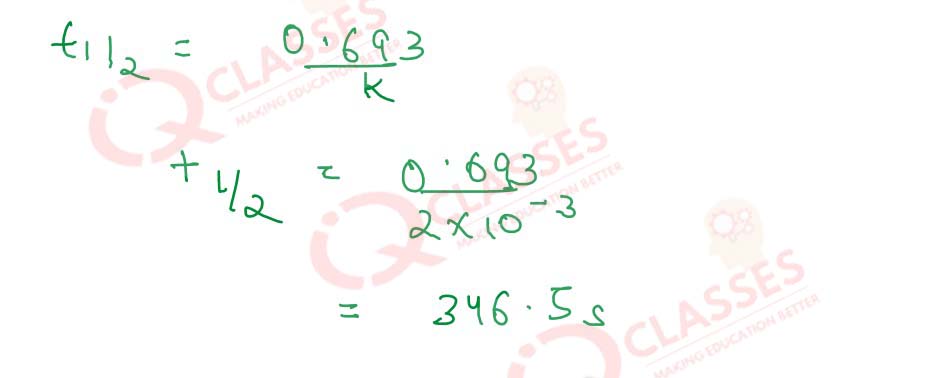 t1/2 = 0.693/K
t 1/2 = 0.693/2×10⁻³
= 346.5 s
iQ CLASSES
MAKING EDUCATION BETTER
iQ CLASSES
MAKING EDUCATION BETTER
iQ CLASSES
MAKING EDUCATION BETTER